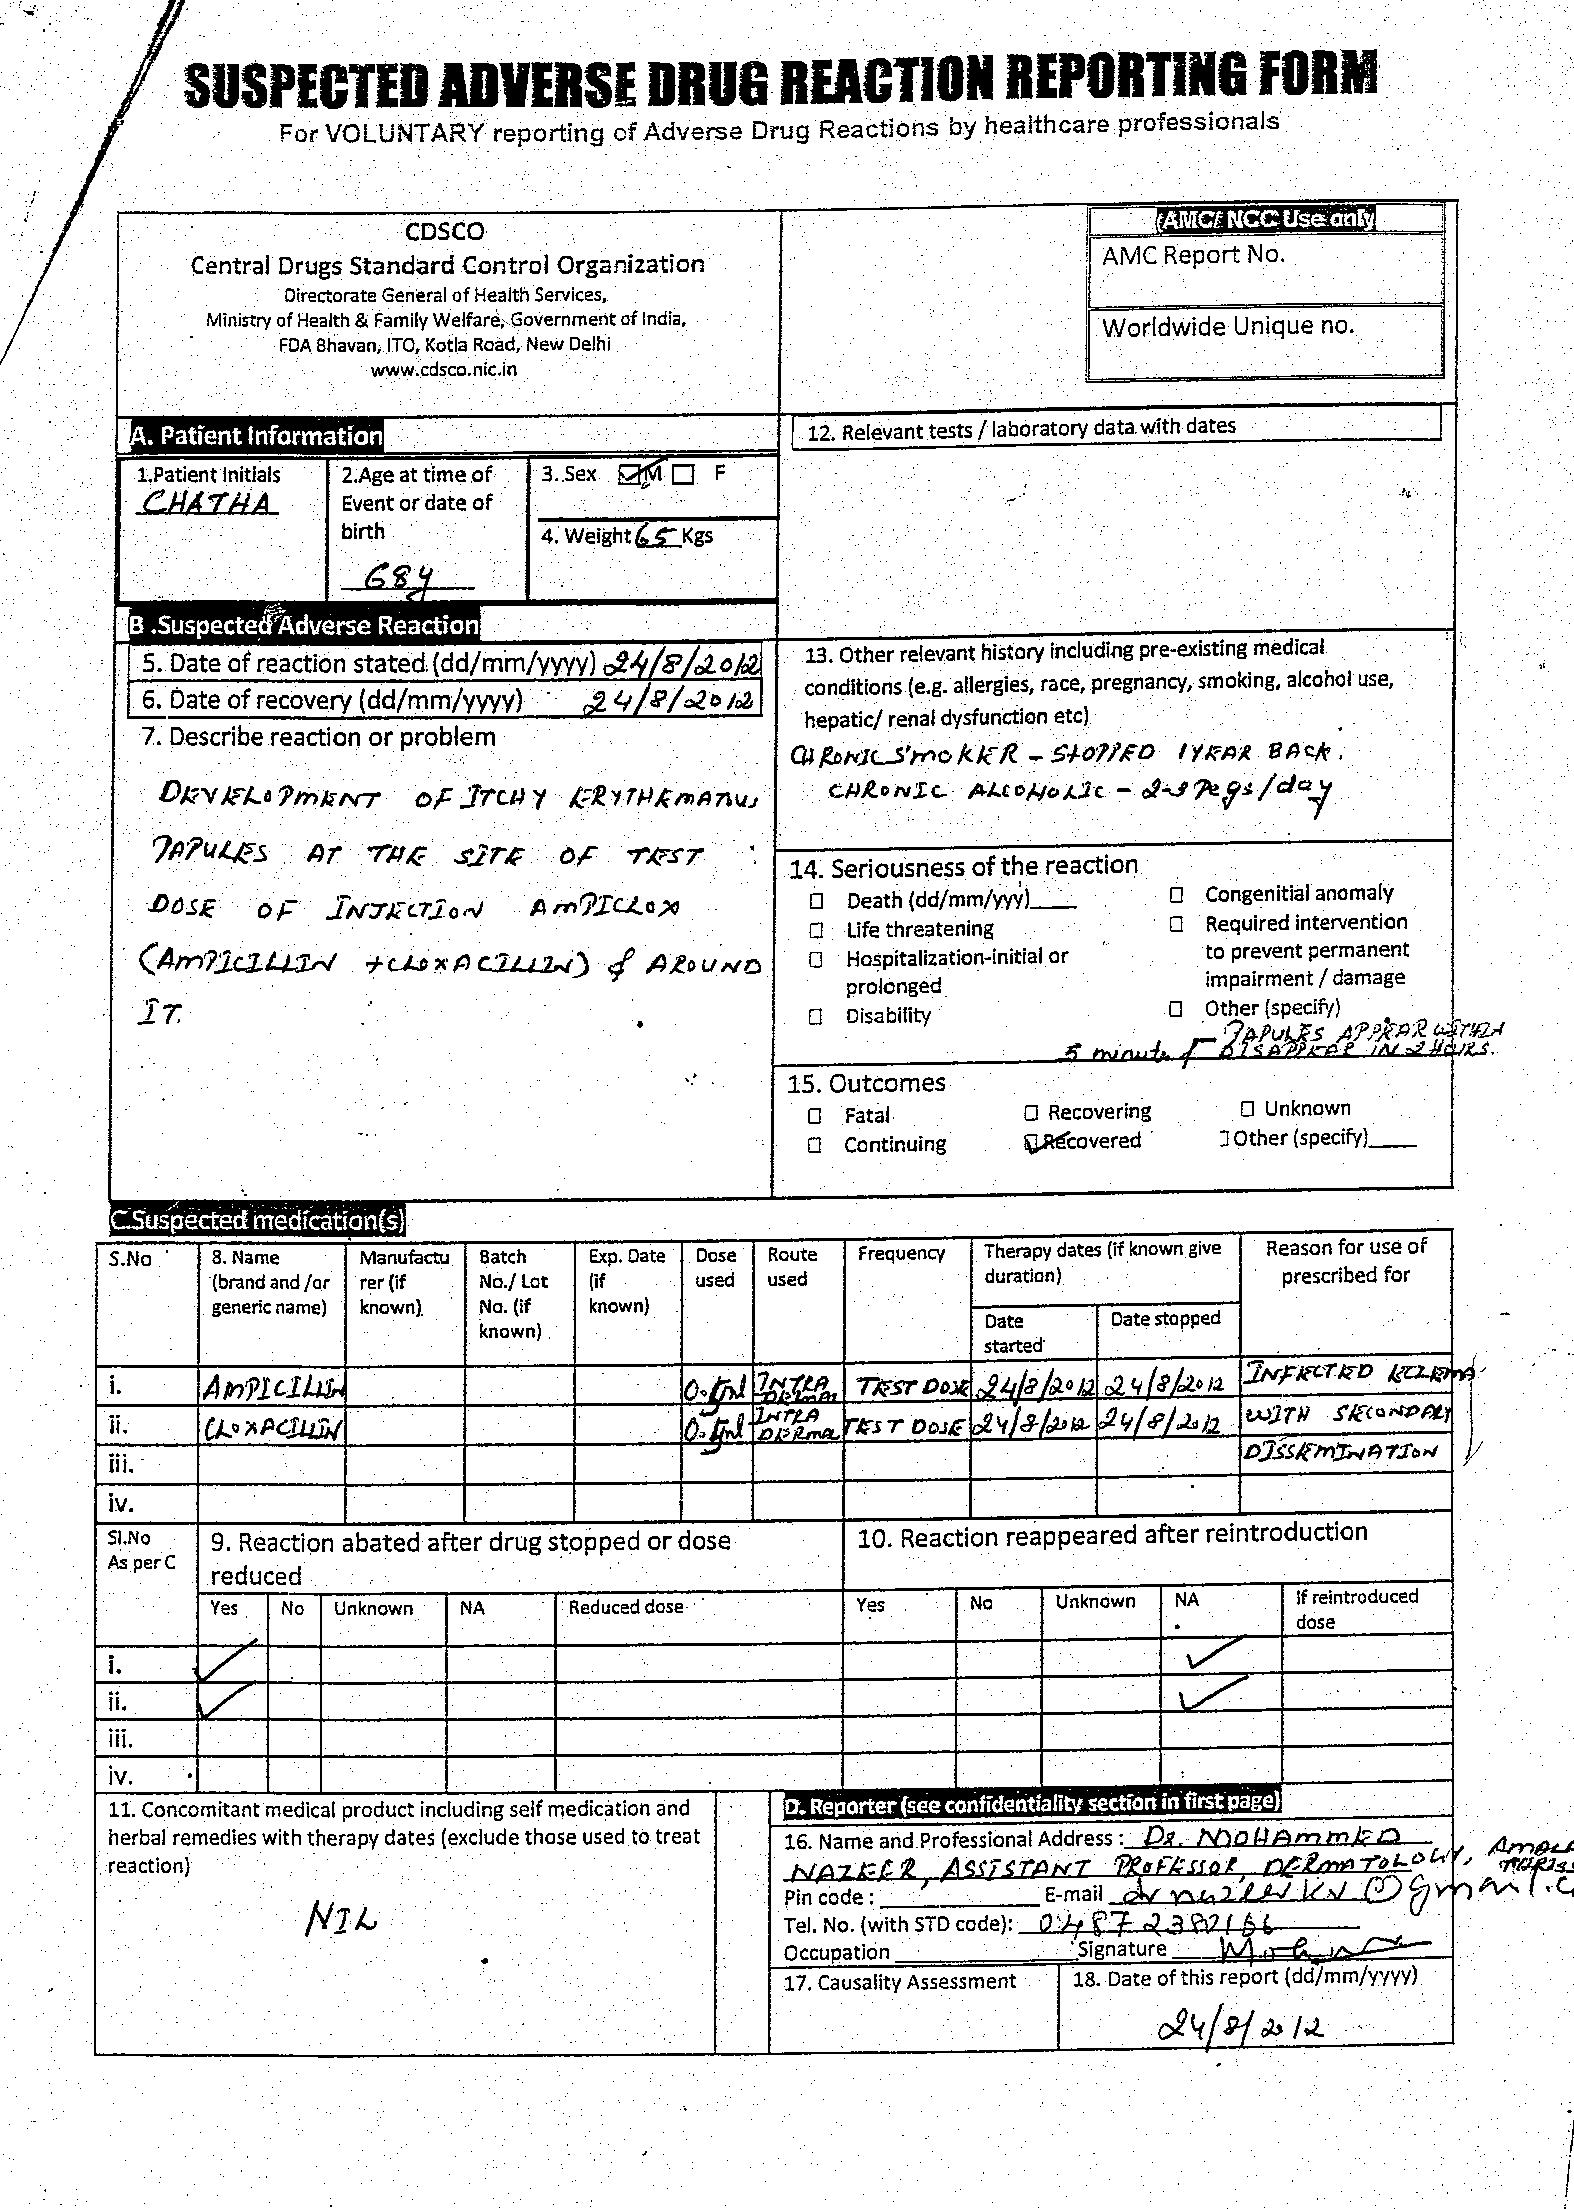 SUSPECTED ADVERSE DRUG REACTION REPORTING FORM
For VOLUNTARY reporting of Adverse Drug Reactions by healthcare professionals
CDSCO
Central Drugs Standard Control Organization
Directorate General of Health Services,
Ministry of Health & Family Welfare, Government of India,
FDA Bhavan, ITO, Kotla Road, New Delhi
www.cdsco.nic.in
(AMC/ NCC Use only
AMC Report No.
Worldwide Unique no.
A. Patient Information
1.Patient Initials
CHATHA
2.Age at time of
Event or date of
birth
68y
3. Sex M F
4. Weight 65 Kgs
B .Suspected Adverse Reaction
5. Date of reaction stated (dd/mm/yyyy) 24/8/2012
6. Date of recovery (dd/mm/yyyy) 24/8/2012
7. Describe reaction or problem
DEVELOPMENT OF ITCHY ERYTHEMATUS
PAPULES AT THE SITE OF TEST
DOSE OF INJECTION AMPICLOX
(AMPICILLIN +CLOXACILLIN) & AROUND
IT.
12. Relevant tests / laboratory data with dates
13. Other relevant history including pre-existing medical
conditions (e.g. allergies, race, pregnancy, smoking, alcohol use,
hepatic/ renal dysfunction etc)
CHRONIC SMOKER - STOPPED 1YEAR BACK.
CHRONIC ALCOHOLIC - 2-3 Pegs/day
14. Seriousness of the reaction
Death (dd/mm/yyy)____
Life threatening
Hospitalization-initial or
prolonged
Disability
Congenitial anomaly
Required intervention
to prevent permanent
impairment / damage
Other (specify)
PAPULES APPEAR WITHIN
5 minute & DISAPPEAR IN 2 HOURS.
15. Outcomes
Fatal Recovering Unknown
Continuing Recovered Other (specify)____
C.Suspected medication(s)
S.No
8. Name
(brand and /or
generic name)
Manufactu
rer (if
known)
Batch
No./ Lot
No. (if
known)
Exp. Date
(if
known)
Dose
used
Route
used
Frequency
Therapy dates (if known give
duration)
Date
started
Date stopped
Reason for use of
prescribed for
i. AMPICILLIN INTRA DERMAL TEST DOSE 24/8/2012 24/8/2012 INFECTED ECZEMA
ii. CLOXACILLIN INTRA DERMA TEST DOSE 24/8/2012 24/8/2012 WITH SECONDARY
iii. DISSEMINATION
iv.
Sl.No
As per C
9. Reaction abated after drug stopped or dose
reduced
10. Reaction reappeared after reintroduction
Yes No Unknown NA Reduced dose Yes No Unknown NA If reintroduced
dose
i.
ii.
iii.
iv.
11. Concomitant medical product including self medication and
herbal remedies with therapy dates (exclude those used to treat
reaction)
NIL
D. Reporter (see confidentiality section in first page)
16. Name and Professional Address : Dr. MOHAMMED
NAZEER, ASSISTANT PROFESSOR, DERMATOLOGY,
Pin code : E-mail
Tel. No. (with STD code): 0487 2382166
Occupation Signature
17. Causality Assessment
18. Date of this report (dd/mm/yyyy)
24/8/2012